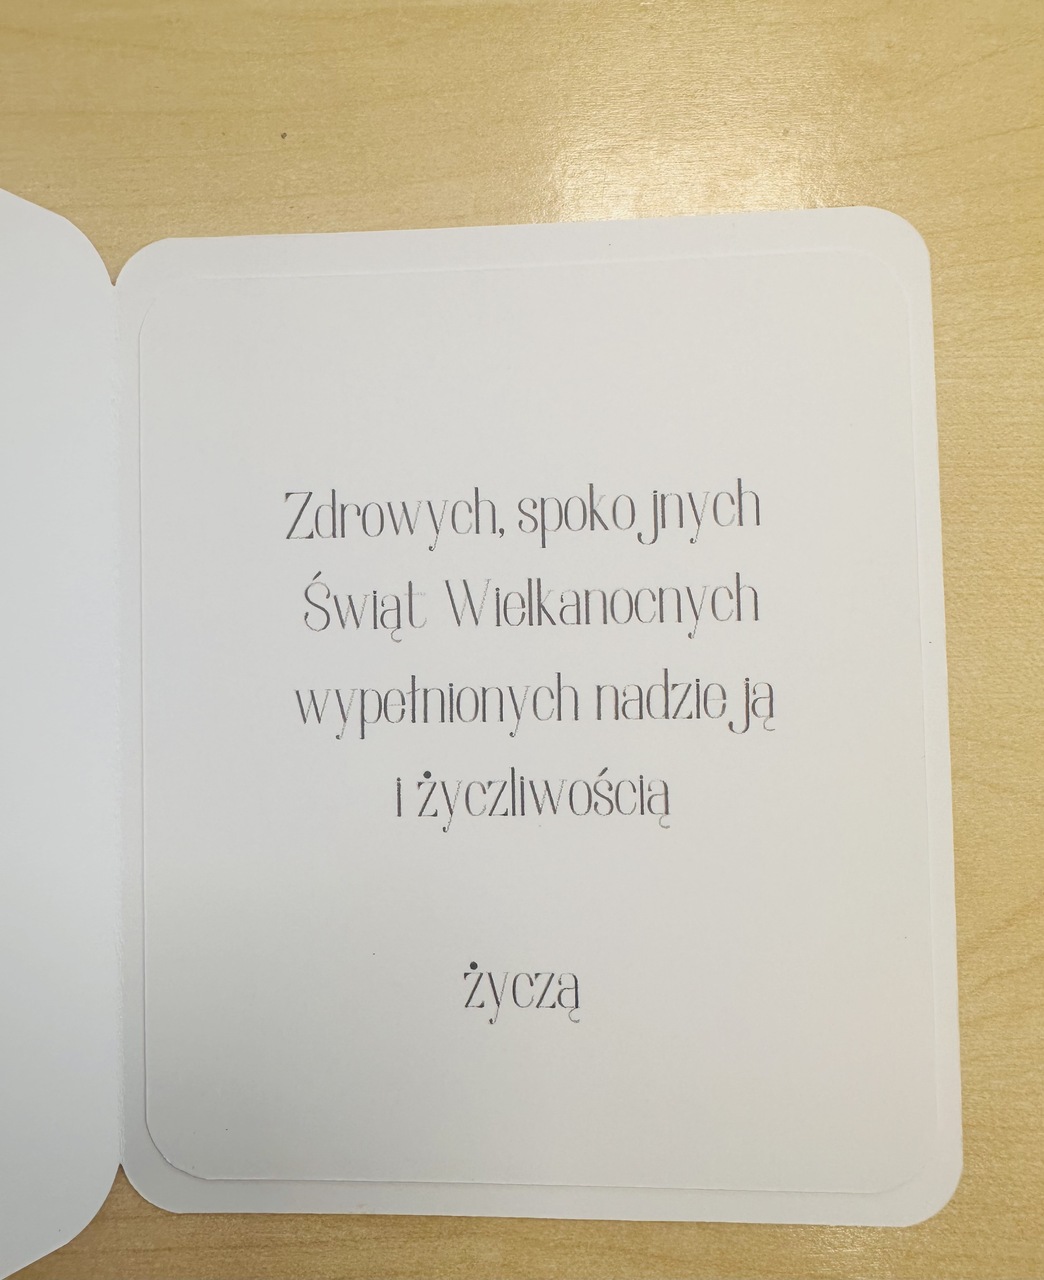 Zdrowych, spokojnych
Świąt Wielkanocnych
wypełnionych nadzieją
i życzliwością
życzą